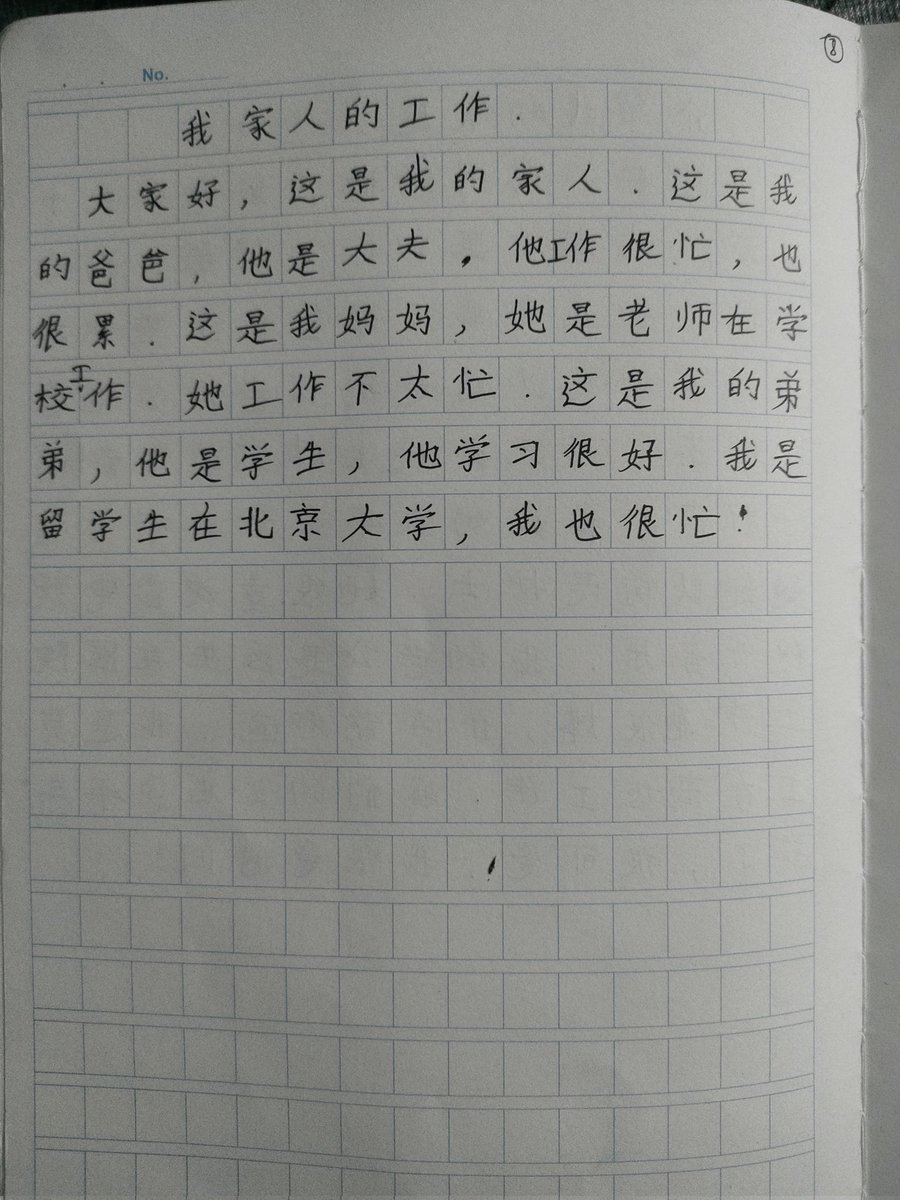 ⑧
No.
我家人的工作.
大家好，这是我的家人.这是我
的爸爸，他是大夫，他工作很忙，也
很累.这是我妈妈，她是老师在学
校工作.她工作不太忙.这是我的弟
弟，他是学生，他学习很好.我是
留学生在北京大学，我也很忙！